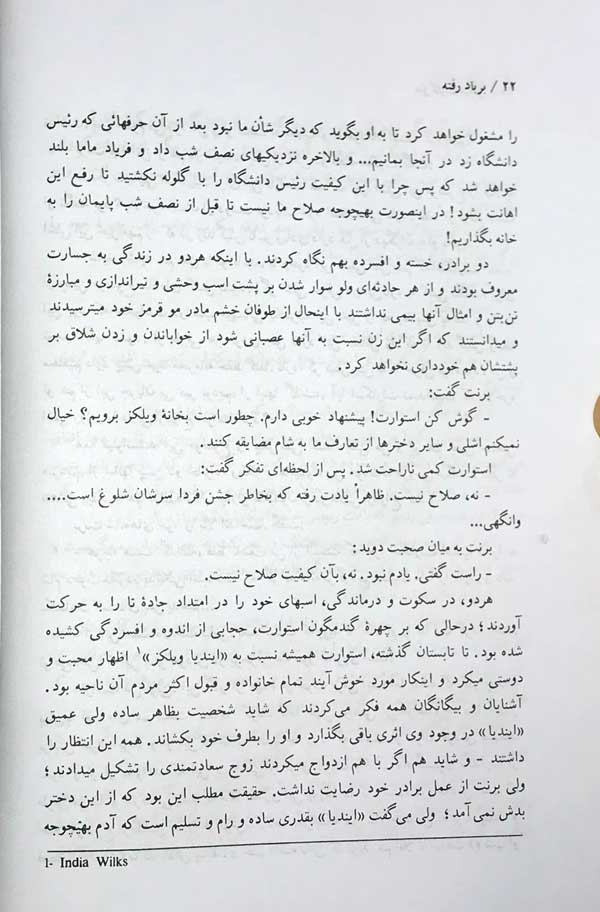 ۲۲ / بر باد رفته
را مشغول خواهد کرد تا به او بگوید که دیگر شأن ما نبود بعد از آن حرفهائی که رئیس
دانشگاه زد در آنجا بمانیم... و بالاخره نزدیکیهای نصف شب داد و فریاد ماما بلند
خواهد شد که پس چرا با این کیفیت رئیس دانشگاه را با گلوله نکشتید تا رفع این
اهانت بشود! در اینصورت بهیچوجه صلاح ما نیست تا قبل از نصف شب پایمان را به
خانه بگذاریم!
دو برادر، خسته و افسرده بهم نگاه کردند. با اینکه هردو در زندگی به جسارت
معروف بودند و از هر حادثه‌ای ولو سوار شدن بر پشت اسب وحشی و تیراندازی و مبارزهٔ
تن‌بتن و امثال آنها بیمی نداشتند با اینحال از طوفان خشم مادر مو قرمز خود میترسیدند
و میدانستند که اگر این زن نسبت به آنها عصبانی شود از خواباندن و زدن شلاق بر
پشتشان هم خودداری نخواهد کرد.
برنت گفت:
- گوش کن استوارت! پیشنهاد خوبی دارم. چطور است بخانهٔ ویلکز برویم؟ خیال
نمیکنم اشلی و سایر دخترها از تعارف ما به شام مضایقه کنند.
استوارت کمی ناراحت شد. پس از لحظه‌ای تفکر گفت:
- نه، صلاح نیست. ظاهراً یادت رفته که بخاطر جشن فردا سرشان شلوغ است....
وانگهی...
برنت به میان صحبت دوید:
- راست گفتی. یادم نبود. نه، بآن کیفیت صلاح نیست.
هردو، در سکوت و درماندگی، اسبهای خود را در امتداد جادهٔ تا را به حرکت
آوردند؛ درحالی که بر چهرهٔ گندمگون استوارت، حجابی از اندوه و افسردگی کشیده
شده بود. تا تابستان گذشته، استوارت همیشه نسبت به «ایندیا ویلکز»۱ اظهار محبت و
دوستی میکرد و اینکار مورد خوش آیند تمام خانواده و قبول اکثر مردم آن ناحیه بود.
آشنایان و بیگانگان همه فکر می‌کردند که شاید شخصیت بظاهر ساده ولی عمیق
«ایندیا» در وجود وی اثری باقی بگذارد و او را بطرف خود بکشاند. همه این انتظار را
داشتند - و شاید هم اگر با هم ازدواج میکردند زوج سعادتمندی را تشکیل میدادند؛
ولی برنت از عمل برادر خود رضایت نداشت. حقیقت مطلب این بود که از این دختر
بدش نمی آمد؛ ولی می‌گفت «ایندیا» بقدری ساده و رام و تسلیم است که آدم بهیچوجه
1- India Wilks